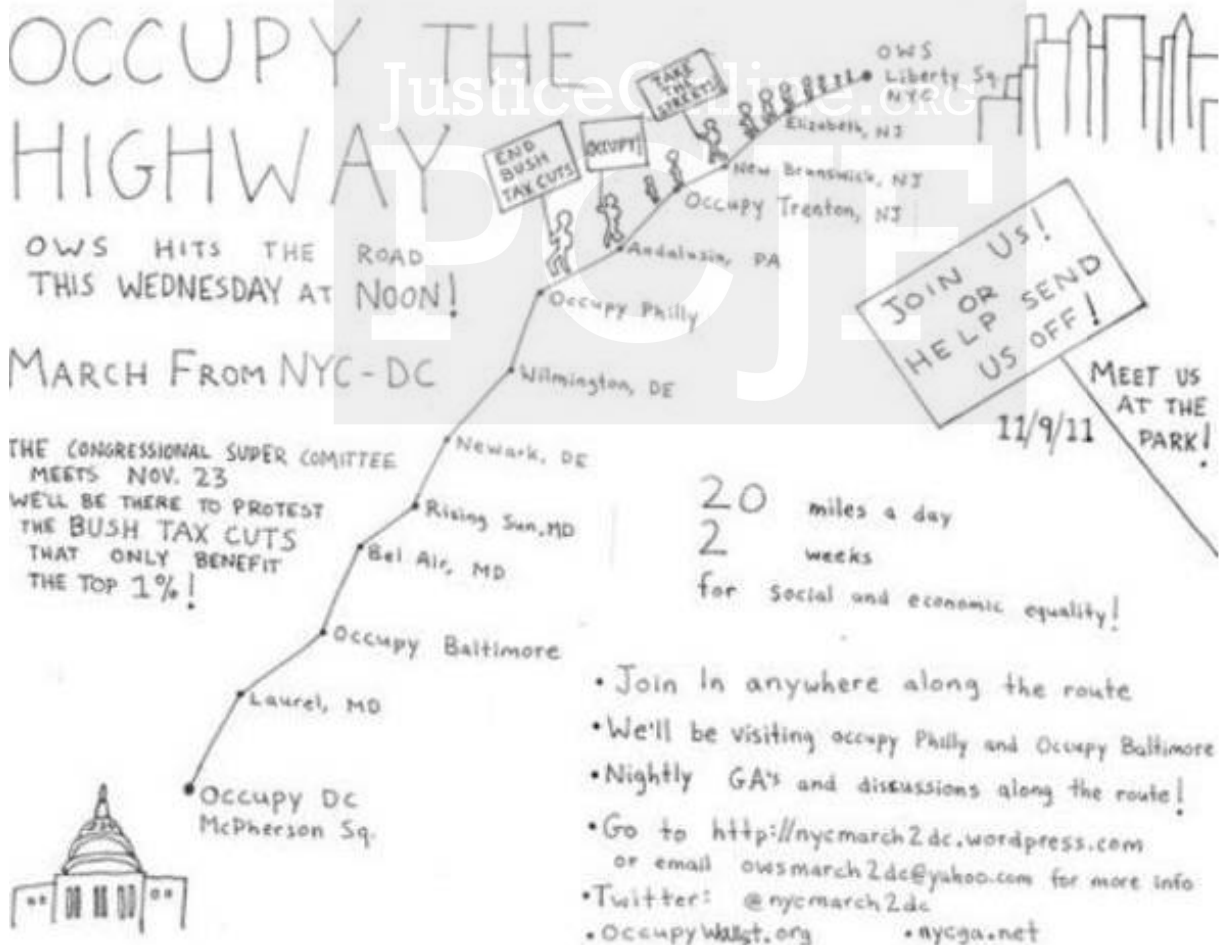 OCCUPY THE
HIGHWAY
OWS HITS THE ROAD
THIS WEDNESDAY AT NOON!
MARCH FROM NYC-DC
THE CONGRESSIONAL SUPER COMITTEE
MEETS NOV. 23
WE'LL BE THERE TO PROTEST
THE BUSH TAX CUTS
THAT ONLY BENEFIT
THE TOP 1%!
END
BUSH
TAX CUTS
OCCUPY!
TAKE
THE
STREETS!
JusticeOnline.ORG
PCJF
OWS
Liberty Sq.
NYC
Elizabeth, NJ
New Brunswick, NJ
Occupy Trenton, NJ
Andalusia, PA
Occupy Philly
Wilmington, DE
Newark, DE
Rising Sun, MD
Bel Air, MD
Occupy Baltimore
Laurel, MD
Occupy DC
McPherson Sq.
JOIN US!
OR
HELP SEND
US OFF!
MEET US
AT THE
PARK!
11/9/11
20 miles a day
2 weeks
for social and economic equality!
• Join in anywhere along the route
• We'll be visiting occupy Philly and Occupy Baltimore
• Nightly GA's and discussions along the route!
• Go to http://nycmarch2dc.wordpress.com
or email owsmarch2dc@yahoo.com for more info
• Twitter: @nycmarch2dc
• OccupyWallst.org • nycga.net